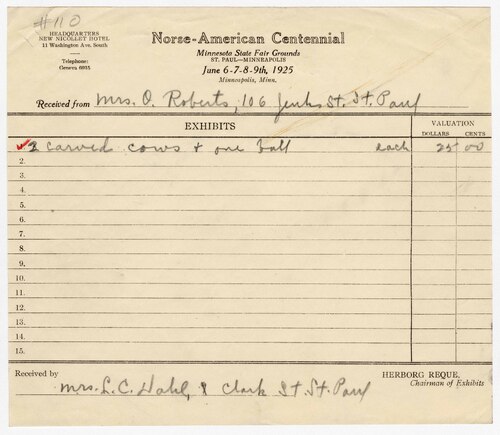 #110
HEADQUARTERS
NEW NICOLLET HOTEL
11 Washington Ave. South
Telephone:
Geneva 6035
Norse-American Centennial
Minnesota State Fair Grounds
ST. PAUL—MINNEAPOLIS
June 6-7-8-9th, 1925
Minneapolis, Minn.
Received from Mrs. O. Roberts, 106 Jenks St. St. Paul
EXHIBITS VALUATION
DOLLARS CENTS
2 carved cows + one ball each 25 00
2.
3.
4.
5.
6.
7.
8.
9.
10.
11.
12.
13.
14.
15.
Received by Mrs. L. C. Dahl, Clark St. St. Paul
HERBORG REQUE,
Chairman of Exhibits